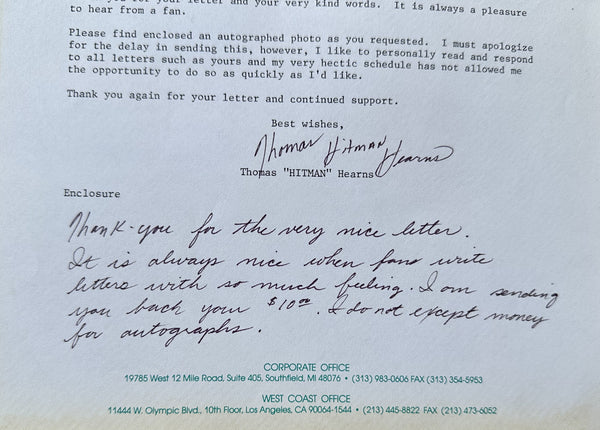 you for your letter and your very kind words. It is always a pleasure
to hear from a fan.
Please find enclosed an autographed photo as you requested. I must apologize
for the delay in sending this, however, I like to personally read and respond
to all letters such as yours and my very hectic schedule has not allowed me
the opportunity to do so as quickly as I'd like.
Thank you again for your letter and continued support.
Best wishes,
Thomas Hitman Hearns
Thomas "HITMAN" Hearns
Enclosure
Thank-you for the very nice letter.
It is always nice when fans write
letters with so much feeling. I am sending
you back your $10.00. I do not except money
for autographs.
CORPORATE OFFICE
19785 West 12 Mile Road, Suite 405, Southfield, MI 48076 • (313) 983-0606 FAX (313) 354-5953
WEST COAST OFFICE
11444 W. Olympic Blvd., 10th Floor, Los Angeles, CA 90064-1544 • (213) 445-8822 FAX (213) 473-6052